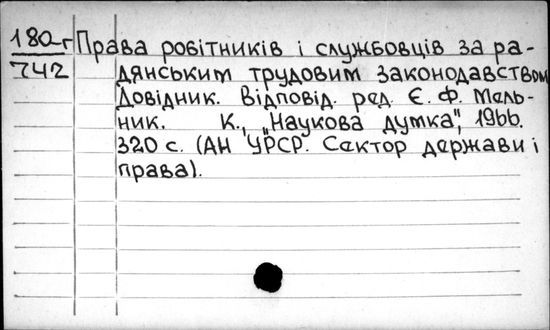 180-г Права робітників і службовців за ра-
742 дянським трудовим законодавством
Довідник. Відповід. ред. Є. Ф. Мель-
ник. К., „Наукова думка", 1966.
320 с. (АН УРСР. Сектор держави і
права).